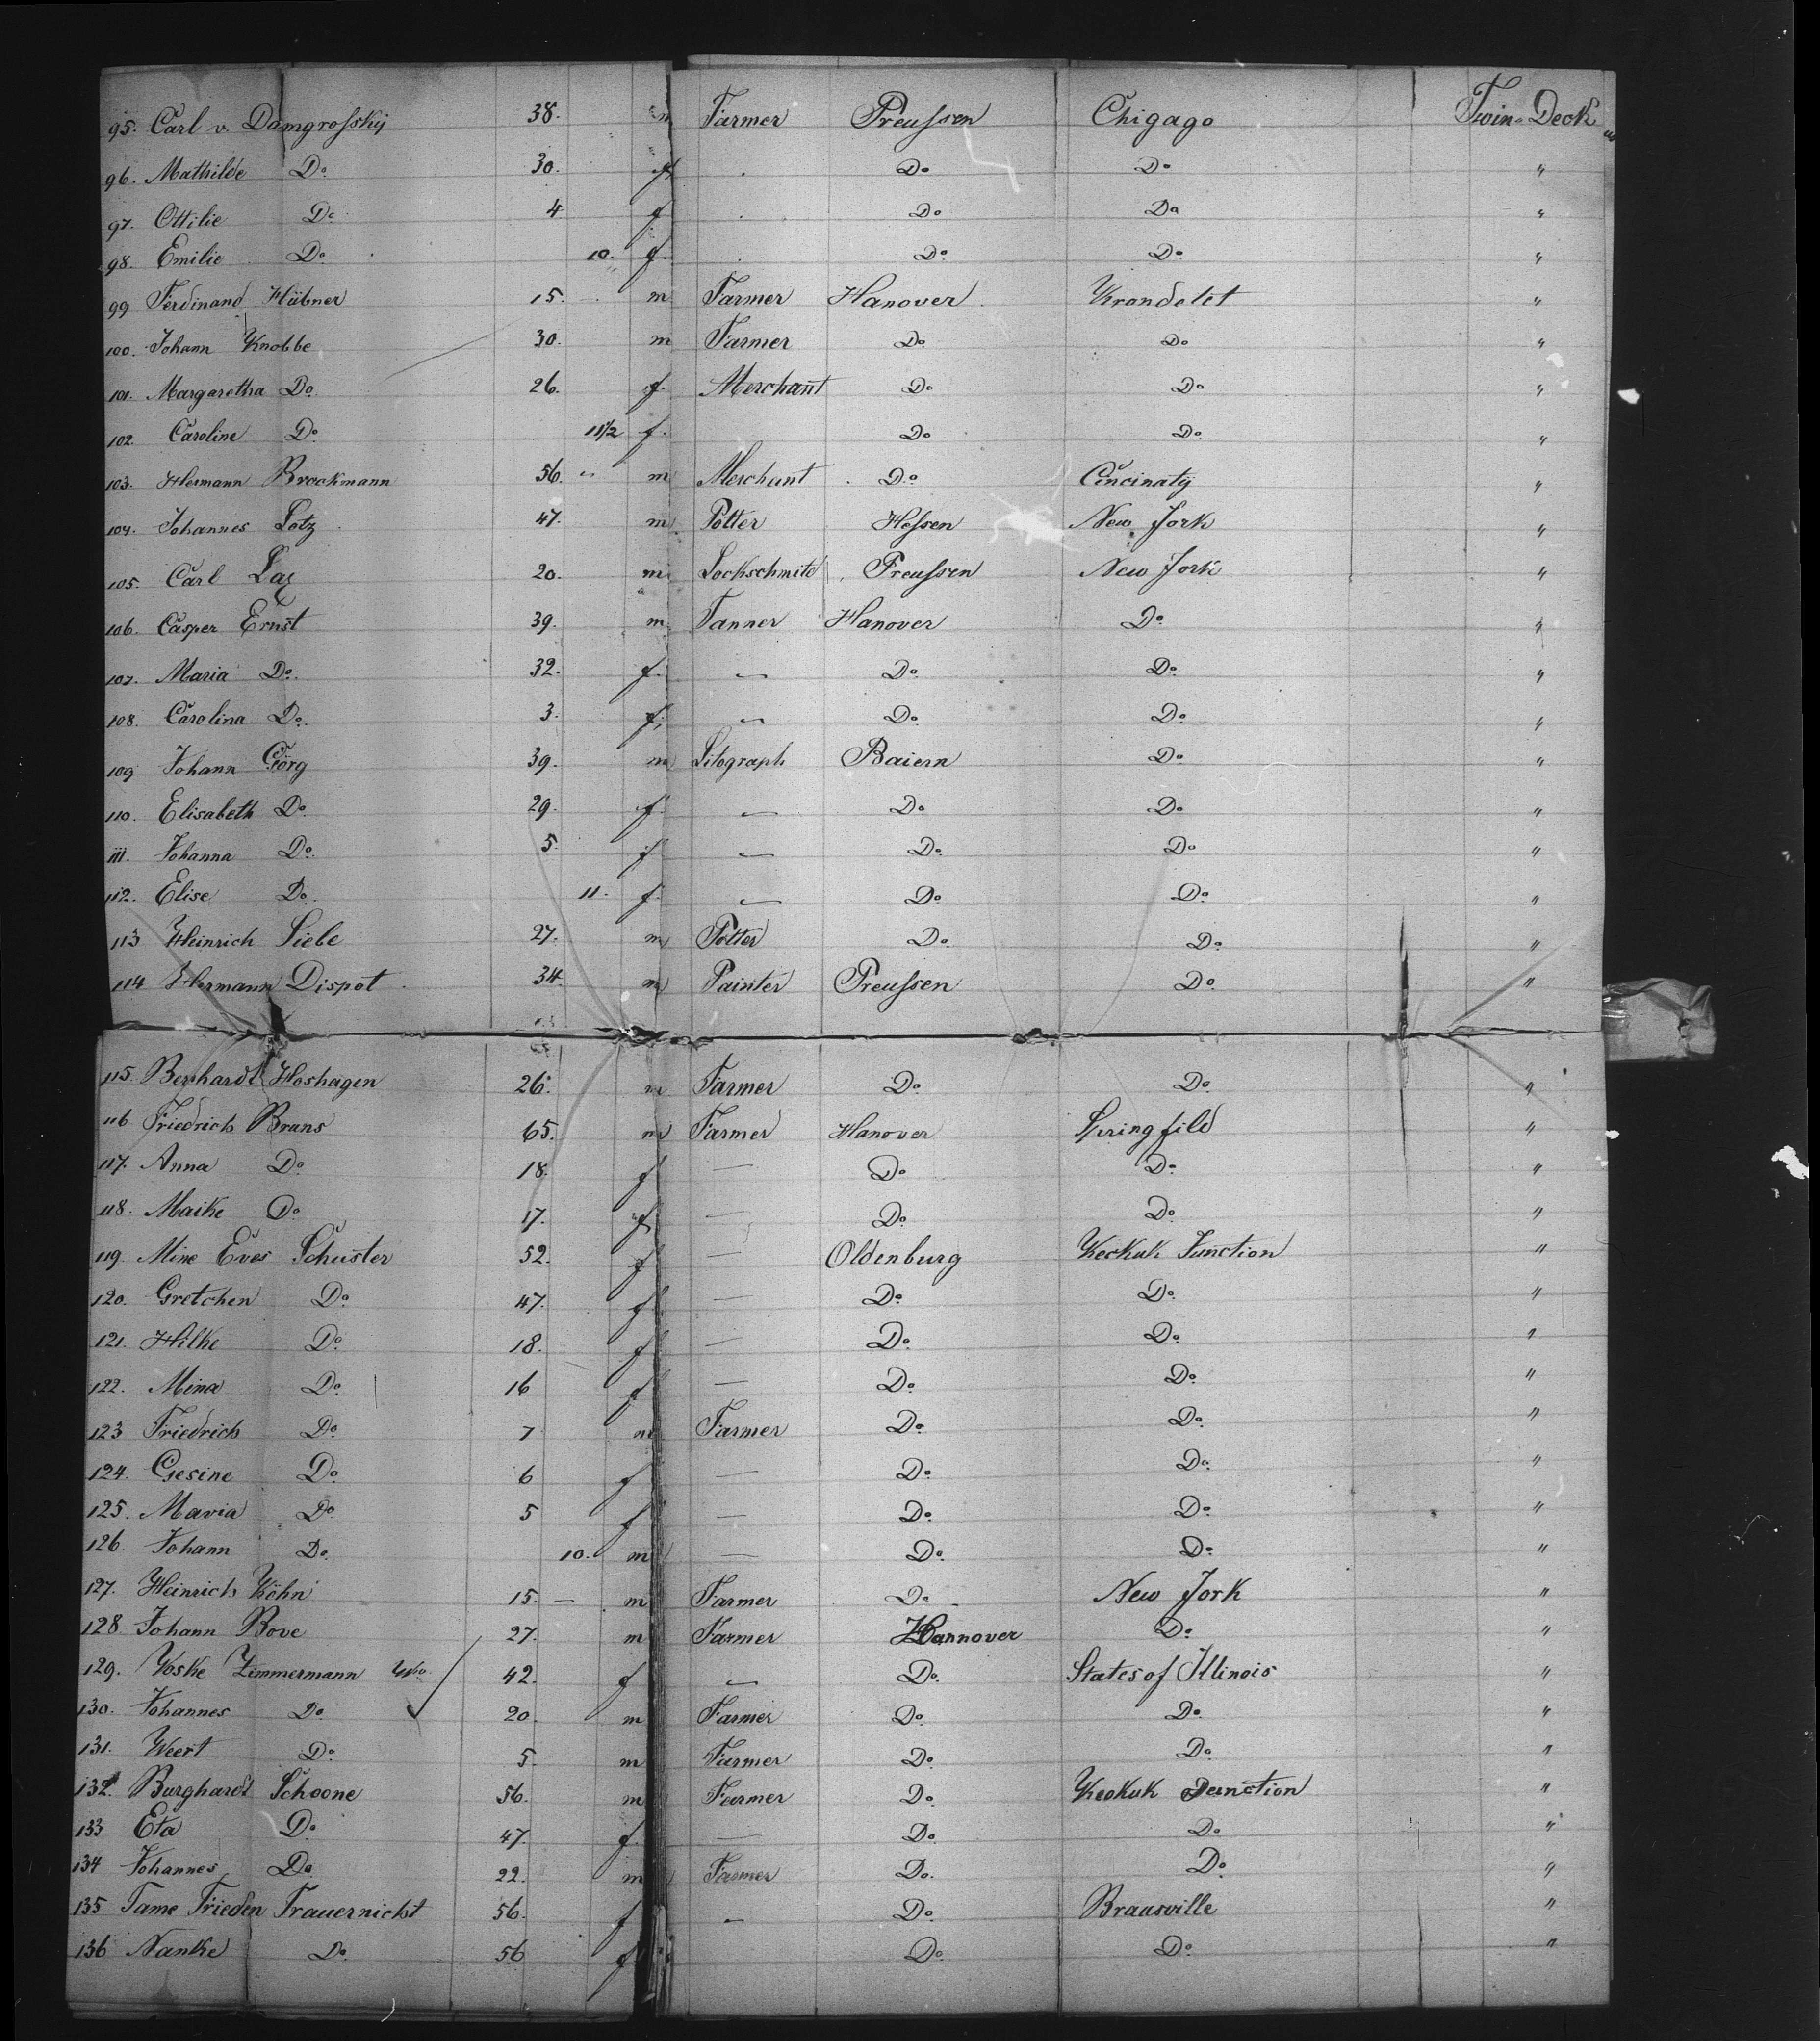 95. Carl v. Damgrofsky 38. m Farmer Preufsen Chigago Twin-Deck
96. Mathilde Do 30. f. Do Do "
97. Ottilie Do 4 f Do Do "
98. Emilie Do 10. f. Do Do "
99 Ferdinand Hübner 15. m Farmer Hanover Krondetet "
100. Johann Knobbe 30. m Farmer Do Do "
101. Margaretha Do 26. f. Merchant Do Do "
102. Caroline Do 11½ f. Do Do "
103. Hermann Brockmann 56. m Merchant Do Cincinaty "
104. Johannes Lotz 47. m Potter Hefsen New Jork "
105. Carl 20. m Lockschmitd Preufsen New Jork "
106. Casper Ernst 39. m Tanner Hanover Do "
107. Maria Do. 32. f. — Do. Do "
108. Carolina Do. 3. f. — Do Do "
109 Johann Görg 39. m Litograph Baiern Do "
110. Elisabeth Do 29. f. — Do Do "
111. Johanna Do. 5. f — Do. Do "
112. Elise Do. 11. f. — Do Do "
113 Heinrich Siebe 27. m Potter Do. Do. "
114 Hermann Dispot 34. m Painter Preufsen Do "
115. Bernhardt Hoshagen 26. m Farmer Do. Do. "
116 Friedrich Bruns 65. m Farmer Hanover Springfild "
117. Anna Do 18. f — Do. Do. "
118. Maike Do. 17. f — Do. Do. "
119 Mine Eves Schuster 52. f — Oldenburg Keokuk Junction "
120. Gretchen Do. 47. f — Do. Do. "
121. Hilke Do. 18. f — Do. Do. "
122. Mina Do. 16 f — Do. Do. "
123 Friedrich Do. 7 m Farmer Do. Do. "
124. Gesine Do. 6 f — Do. Do. "
125. Maria Do. 5 f — Do. Do. "
126. Johann Do. 10. m — Do. Do. "
127. Heinrich Köhn 15. — m Farmer Do. New Jork "
128. Johann Bove 27. m Farmer Hannover Do. "
129. Voske Zimmermann 42. f — Do. States of Illinois "
130. Johannes Do. 20. m Farmer Do. Do. "
131. Weert Do. 5. m Farmer Do. Do. "
132. Burghardt Schoone 56. m Farmer Do. Keokuk Junction "
133 Eta Do. 47. f. — Do. Do "
134 Johannes Do 22. m Farmer Do. Do. "
135 Tame Frieden Trauernicht 56. f — Do. Braasville "
136 Nanke Do. 56 f Do. Do. "